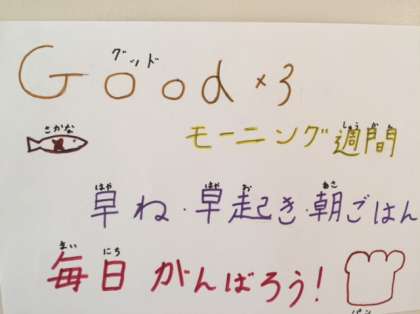 グッド
Good×3
さかな
しゅうかん
モーニング週間
はや はや お あさ
早ね・早起き・朝ごはん
まい にち
毎日がんばろう!
パン